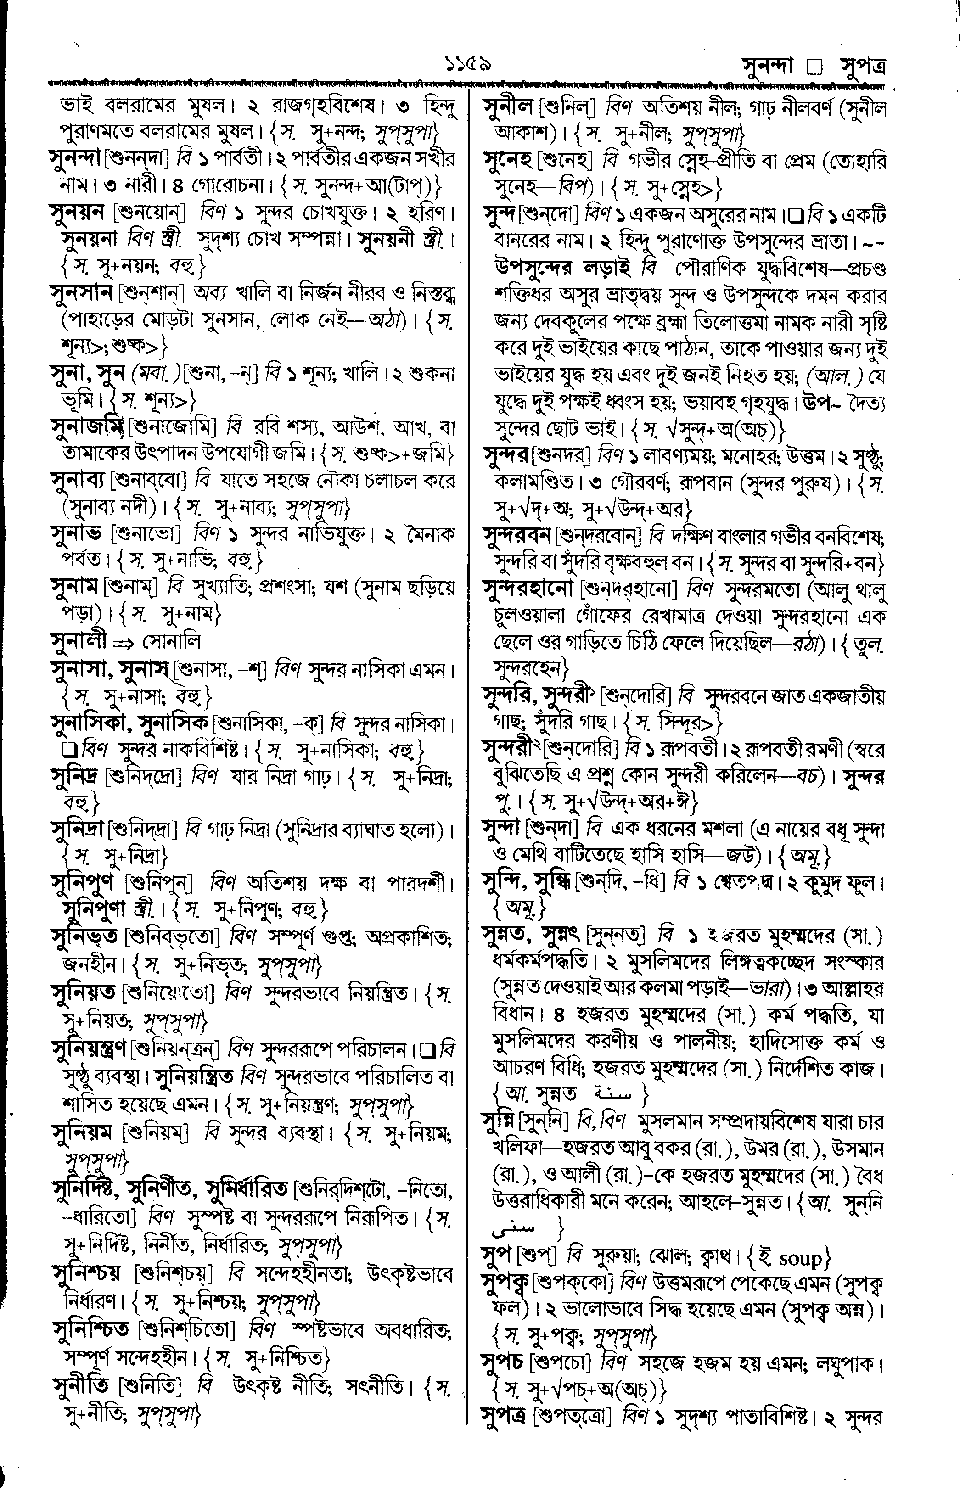 ১১৫৯
সুনন্দা □ সুপত্র
ভাই বলরামের মুষল। ২ রাজগৃহবিশেষ। ৩ হিন্দু
পুরাণমতে বলরামের মুষল। {স. সু+নন্দ; সুপ্‌সুপা}
সুনন্দা [শুনন্‌দা] বি ১ পার্বতী। ২ পার্বতীর একজন সখীর
নাম। ৩ নারী। ৪ গোরোচনা। {স. সুনন্দ+আ(টাপ্‌)}
সুনয়ন [শুনয়োন্‌] বিণ ১ সুন্দর চোখযুক্ত। ২ হরিণ।
সুনয়না বিণ স্ত্রী. সুদৃশ্য চোখ সম্পন্না। সুনয়নী স্ত্রী.।
{স. সু+নয়ন; বহু.}
সুনসান [শুন্‌শান্‌] অব্য খালি বা নির্জন নীরব ও নিস্তব্ধ
(পাহাড়ের মোড়টা সুনসান, লোক নেই—অঠা)। {স.
শূন্য>; শুষ্ক>}
সুনা, সুন (মবা.) [শুনা, -ন্‌] বি ১ শূন্য; খালি। ২ শুকনা
ভূমি। {স. শূন্য>}
সুনাজমি [শুনাজোমি] বি রবি শস্য, আউশ, আখ, বা
তামাকের উৎপাদন উপযোগী জমি। {স. শুষ্ক>+জমি}
সুনাব্য [শুনাব্‌বো] বি যাতে সহজে নৌকা চলাচল করে
(সুনাব্য নদী)। {স. সু+নাব্য; সুপ্‌সুপা}
সুনাভ [শুনাভো] বিণ ১ সুন্দর নাভিযুক্ত। ২ মৈনাক
পর্বত। {স. সু+নাভি; বহু.}
সুনাম [শুনাম্‌] বি সুখ্যাতি; প্রশংসা; যশ (সুনাম ছড়িয়ে
পড়া)। {স. সু+নাম}
সুনালী ⇒ সোনালি
সুনাসা, সুনাস [শুনাসা, -শ্‌] বিণ সুন্দর নাসিকা এমন।
{স. সু+নাসা; বহু.}
সুনাসিকা, সুনাসিক [শুনাসিকা, -ক্‌] বি সুন্দর নাসিকা।
□ বিণ সুন্দর নাকবিশিষ্ট। {স. সু+নাসিকা; বহু.}
সুনিদ্র [শুনিদ্‌দ্রো] বিণ যার নিদ্রা গাঢ়। {স. সু+নিদ্রা;
বহু.}
সুনিদ্রা [শুনিদ্‌দ্রা] বি গাঢ় নিদ্রা (সুনিদ্রার ব্যাঘাত হলো)।
{স. সু+নিদ্রা}
সুনিপুণ [শুনিপুন্‌] বিণ অতিশয় দক্ষ বা পারদর্শী।
সুনিপুণা স্ত্রী.। {স. সু+নিপুণ; বহু.}
সুনিভৃত [শুনিব্‌ভৃতো] বিণ সম্পূর্ণ গুপ্ত; অপ্রকাশিত;
জনহীন। {স. সু+নিভৃত; সুপ্‌সুপা}
সুনিয়ত [শুনিয়োতো] বিণ সুন্দরভাবে নিয়ন্ত্রিত। {স.
সু+নিয়ত; সুপ্‌সুপা}
সুনিয়ন্ত্রণ [শুনিয়ন্‌ত্রন্‌] বিণ সুন্দররূপে পরিচালন। □ বি
সুষ্ঠু ব্যবস্থা। সুনিয়ন্ত্রিত বিণ সুন্দরভাবে পরিচালিত বা
শাসিত হয়েছে এমন। {স. সু+নিয়ন্ত্রণ; সুপ্‌সুপা}
সুনিয়ম [শুনিয়ম্‌] বি সুন্দর ব্যবস্থা। {স. সু+নিয়ম;
সুপ্‌সুপা}
সুনির্দিষ্ট, সুনির্ণীত, সুনির্ধারিত [শুনির্‌দিশ্‌টো, -নিতো,
-ধারিতো] বিণ সুস্পষ্ট বা সুন্দররূপে নিরূপিত। {স.
সু+নির্দিষ্ট, নির্নীত, নির্ধারিত; সুপ্‌সুপা}
সুনিশ্চয় [শুনিশ্‌চয়্‌] বি সন্দেহহীনতা; উৎকৃষ্টভাবে
নির্ধারণ। {স. সু+নিশ্চয়; সুপ্‌সুপা}
সুনিশ্চিত [শুনিশ্‌চিতো] বিণ স্পষ্টভাবে অবধারিত;
সম্পূর্ণ সন্দেহহীন। {স. সু+নিশ্চিত}
সুনীতি [শুনিতি] বি উৎকৃষ্ট নীতি; সৎনীতি। {স.
সু+নীতি; সুপ্‌সুপা}
সুনীল [শুনিল্‌] বিণ অতিশয় নীল; গাঢ় নীলবর্ণ (সুনীল
আকাশ)। {স. সু+নীল; সুপ্‌সুপা}
সুনেহ [শুনেহ] বি গভীর স্নেহ-প্রীতি বা প্রেম (তোহারি
সুনেহ—বিপ)। {স. সু+স্নেহ>}
সুন্দ [শুন্‌দো] বিণ ১ একজন অসুরের নাম। □ বি ১ একটি
বানরের নাম। ২ হিন্দু পুরাণোক্ত উপসুন্দের ভ্রাতা। ~~
উপসুন্দের লড়াই বি পৌরাণিক যুদ্ধবিশেষ—প্রচণ্ড
শক্তিধর অসুর ভ্রাতৃদ্বয় সুন্দ ও উপসুন্দকে দমন করার
জন্য দেবকুলের পক্ষে ব্রহ্মা তিলোত্তমা নামক নারী সৃষ্টি
করে দুই ভাইয়ের কাছে পাঠান, তাকে পাওয়ার জন্য দুই
ভাইয়ের যুদ্ধ হয় এবং দুই জনই নিহত হয়; (আল.) যে
যুদ্ধে দুই পক্ষই ধ্বংস হয়; ভয়াবহ গৃহযুদ্ধ। উপ~ দৈত্য
সুন্দের ছোট ভাই। {স. √সুন্দ্‌+অ(অচ্‌)}
সুন্দর [শুনদর্‌] বিণ ১ লাবণ্যময়; মনোহর; উত্তম। ২ সুষ্ঠু;
কলামণ্ডিত। ৩ গৌরবর্ণ; রূপবান (সুন্দর পুরুষ)। {স.
সু+√দৃ+অ; সু+√উন্দ্‌+অর}
সুন্দরবন [শুন্‌দরবোন্‌] বি দক্ষিণ বাংলার গভীর বনবিশেষ;
সুন্দরি বা সুঁদরি বৃক্ষবহুল বন। {স. সুন্দর বা সুন্দরি+বন}
সুন্দরহানো [শুন্‌দরহানো] বিণ সুন্দরমতো (আলু থালু
চুলওয়ালা গোঁফের রেখামাত্র দেওয়া সুন্দরহানো এক
ছেলে ওর গাড়িতে চিঠি ফেলে দিয়েছিল—রঠা)। {তুল.
সুন্দরহেন}
সুন্দরি, সুন্দরী১ [শুন্‌দোরি] বি সুন্দরবনে জাত একজাতীয়
গাছ; সুঁদরি গাছ। {স. সিন্দূর>}
সুন্দরী২ [শুন্‌দোরি] বি ১ রূপবতী। ২ রূপবতী রমণী (স্বরে
বুঝিতেছি এ প্রশ্ন কোন সুন্দরী করিলেন—বচ)। সুন্দর
পু.। {স. সু+√উন্দ্‌+অর+ঈ}
সুন্দা [শুন্‌দা] বি এক ধরনের মশলা (এ নায়ের বধূ সুন্দা
ও মেথি বাটিতেছে হাসি হাসি—জউ)। {অমূ.}
সুন্দি, সুন্ধি [শুন্‌দি, -ধি] বি ১ শ্বেতপদ্ম। ২ কুমুদ ফুল।
{অমূ.}
সুন্নত, সুন্নৎ [সুন্‌নত্‌] বি ১ হজরত মুহম্মদের (সা.)
ধর্মকর্মপদ্ধতি। ২ মুসলিমদের লিঙ্গত্বকচ্ছেদ সংস্কার
(সুন্নত দেওয়াই আর কলমা পড়াই—ভারা)। ৩ আল্লাহর
বিধান। ৪ হজরত মুহম্মদের (সা.) কর্ম পদ্ধতি, যা
মুসলিমদের করণীয় ও পালনীয়; হাদিসোক্ত কর্ম ও
আচরণ বিধি; হজরত মুহম্মদের (সা.) নির্দেশিত কাজ।
{আ. সুন্নত سنة }
সুন্নি [সুন্‌নি] বি, বিণ মুসলমান সম্প্রদায়বিশেষ যারা চার
খলিফা—হজরত আবু বকর (রা.), উমর (রা.), উসমান
(রা.), ও আলী (রা.)-কে হজরত মুহম্মদের (সা.) বৈধ
উত্তরাধিকারী মনে করেন; আহলে-সুন্নত। {আ. সুন্‌নি
سنى }
সুপ [শুপ্‌] বি সুরুয়া; ঝোল; ক্বাথ। {ই soup}
সুপক্ব [শুপক্‌কো] বিণ উত্তমরূপে পেকেছে এমন (সুপক্ব
ফল)। ২ ভালোভাবে সিদ্ধ হয়েছে এমন (সুপক্ব অন্ন)।
{স. সু+পক্ব; সুপ্‌সুপা}
সুপচ [শুপচো] বিণ সহজে হজম হয় এমন; লঘুপাক।
{স. সু+√পচ্‌+অ(অচ্‌)}
সুপত্র [শুপত্‌ত্রো] বিণ ১ সুদৃশ্য পাতাবিশিষ্ট। ২ সুন্দর